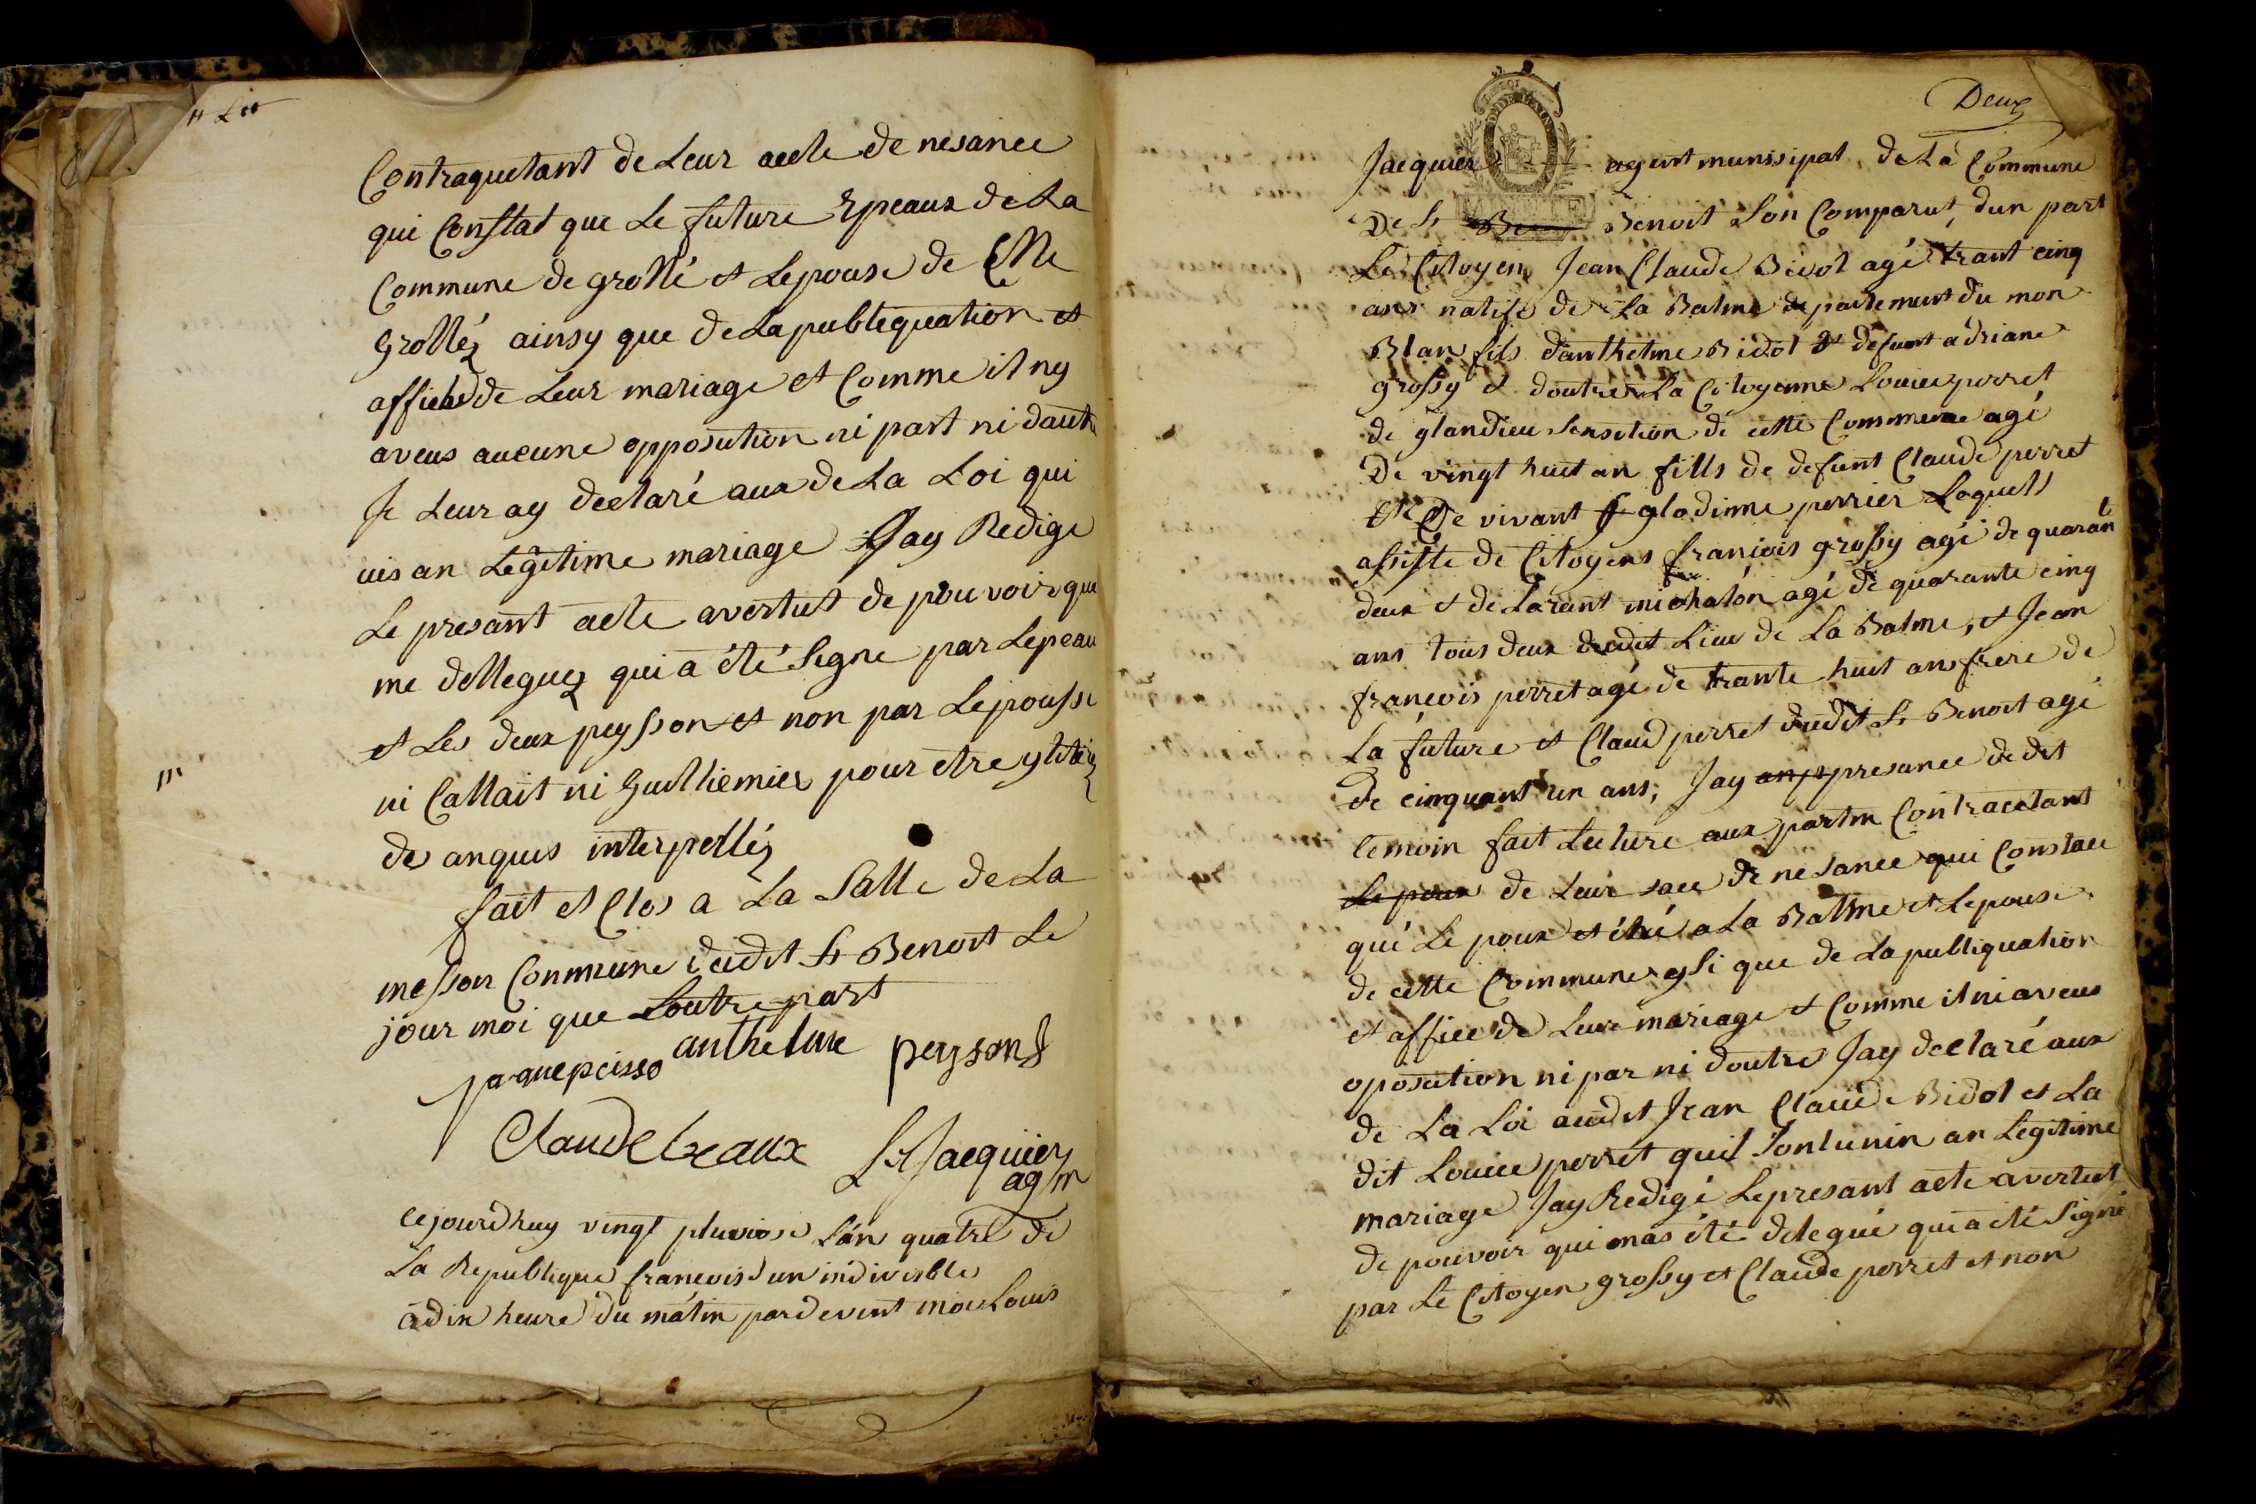 Contraquetant de Leur acete de nesance
qui Constat que Le future Epeaux de La
Commune de grollé et Lepouse de
Grollez ainsy que de La publequation et
affiche de Leur mariage et Comme il ny
aveus aucune opposution ni part ni dautre
Je Leur ay declaré aux de La Loi qui
uis an Legitime mariage Jay Redige
Le presant acte avertut de pouvoir que
me delleguez qui a été Segne par Lepeau
et Les deux peysson et non par Lepousse
ni Callait ni Guilliemier pour etre
de anquis interpellez
fait et Clos a La Salle de La
messon Conmune dudit St Benoit Le
jour moi que Loutre part
jaquepeisso anthelme peyson
Claude
LS Jacquier
ag m
Cejourdhuy vingt pluviose L'an quatre de
La Republique francois un indivisble
a dix heure du matin pardevent moi Louis
Deux
Jacquier agent munisipal de La Commune
De St Benoit Son Comparut, dun part
Le Citoyen Jean Claude Bidol agé trant cinq
ans natife de La Balme departement du mon
Blan fils danthelme Bidol et defunt adriane
grossy et doutre La Citoyenne Louise perret
de glandieu sensetion de cette Commune agé
De vingt huit an fills de defunt Claude perret
Et De vivant glodinne perrier Laquells
assiste de Citoyens francois grossy agé de quaran
deux et de Larant michalon agé de quarante cinq
ans tous deux dudit Lieu de La Balme, et Jean
francois perret agé de trante huit ans frere de
La future et Claud perret dudit St Benoit agé
de cinquant un ans, Jay presance de dit
temoin fait Lecture aux partin Contracetant
Le poux de Leur de nesance qui Constau
qui Le poux et a La Balme et Lepouse
de cette Commune ysi que de La publiquation
et affiee de Leur mariage et Comme il ni aveus
oposution ni par ni doutre Jay declaré aux
de La Loi audit Jean Claude Bidol et La
dit Louise perret quil Sont unin an Legitime
mariage Jay Redigé Le presant acte avertut
de pouvoir qui mas été delegué qui a eté Signé
par Le Citoyen grossy et Claude perret et non